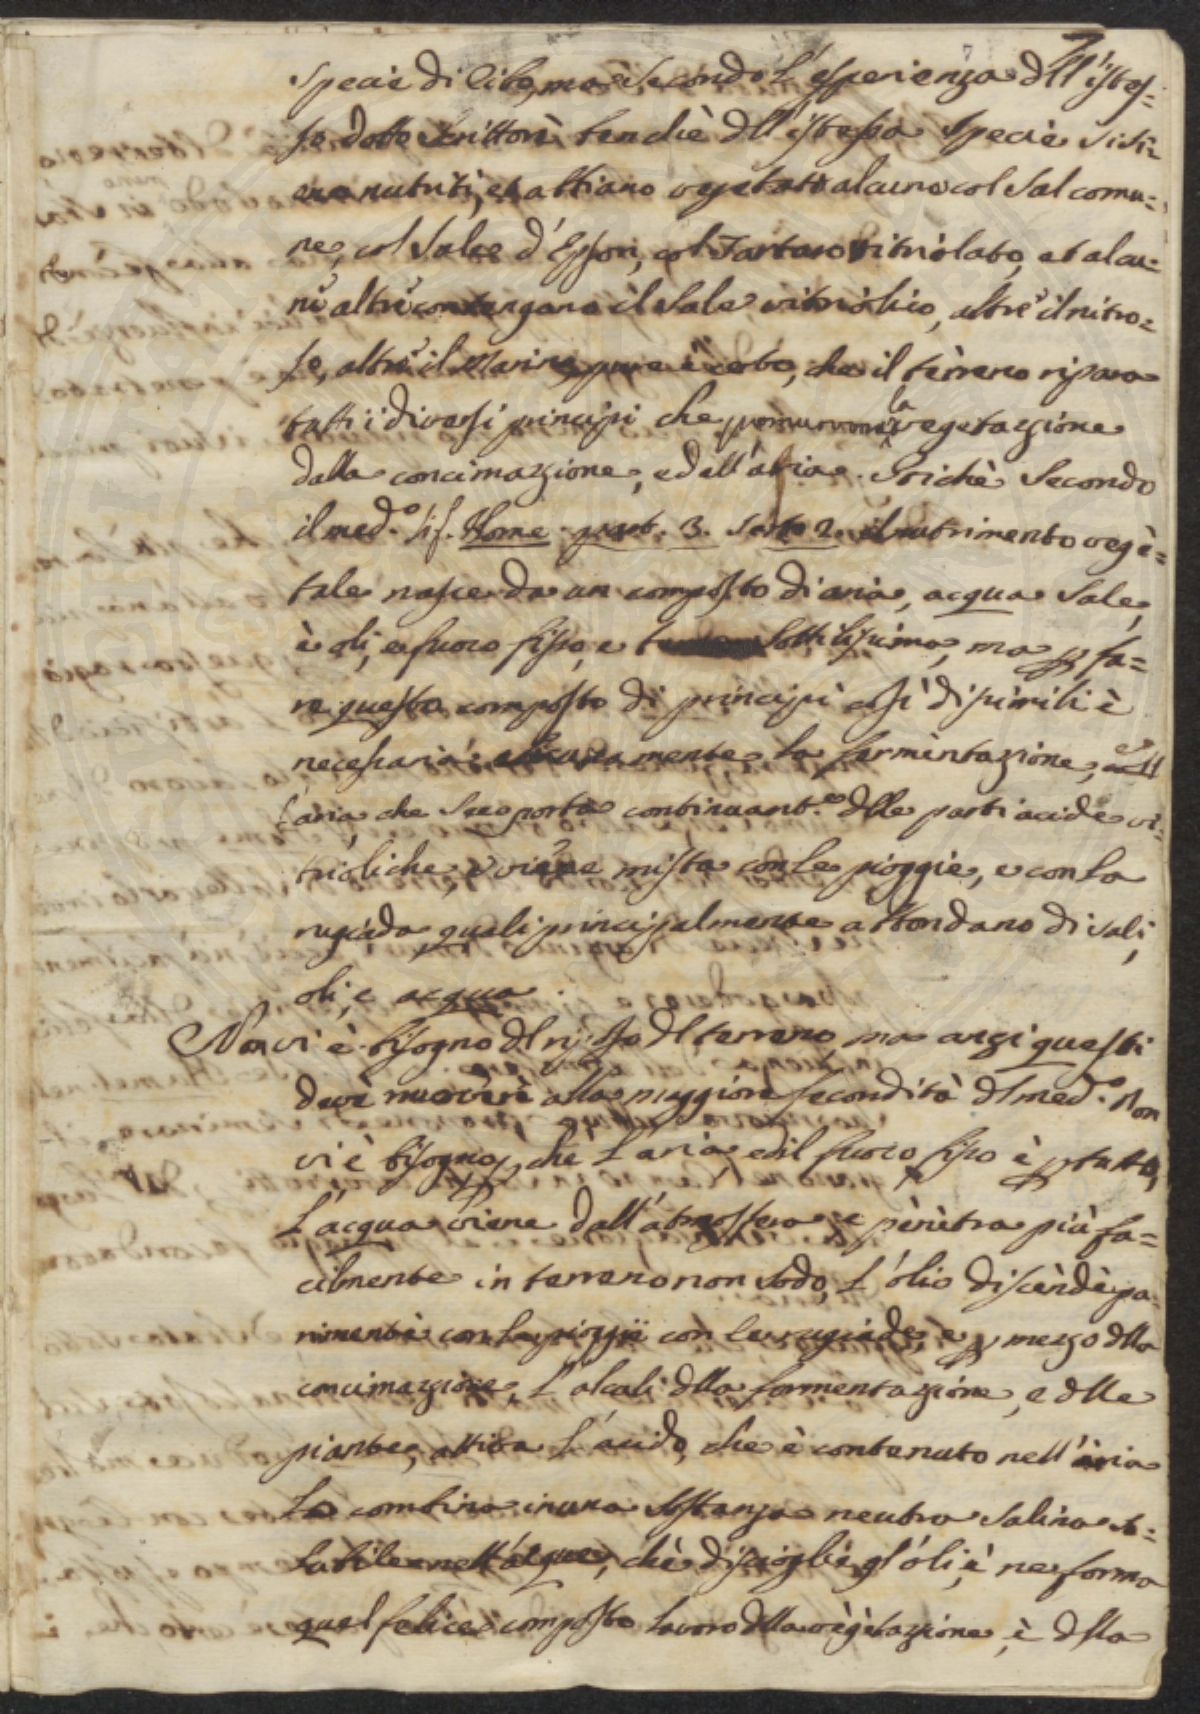 7
specie di cibo, ma secondo l'esperienza dll'istes=
so dotto Scrittore benchè dll'istessa specie si si=
eno nutriti, et abbiano vegetato alcuno col Sal comu=
ne, col Sale d'Epson, col Tartaro vitriolato, et alcu=
ni altri contengano il Sale vitriolico, altri il nitro=
so, altri il Marino, pure è certo, che il terreno ripara
tutti i diversi principj che promuovono la vegetazione
dalla concimazione, e dall'aria. Poichè Secondo
il med.o Sif. Home part. 3. Sett. 2. il nutrimento vegè=
tale nasce da un composto di aria, acqua Sale,
è oli, e fuoco fisso, e sottilissimo, ma p fa=
re questo composto di principj così disimili è
necessaria la fermentazione,
l'aria che seco porta continuant.e dlle parti acide vi=
trioliche, e viene mista con le pioggie, e con la
rugiada quali principalmente abbondano di sali,
oli, e acqua.
Non vi è bisogno dl riposo dl terreno ma anzi questi
deve nuocere alla maggiore fecondità dl med.o Non
vi è bisogno, p che l'aria, ed il fuoco fisso è p tutto,
L'acqua viene dall'atmosfera e pènetra più fa=
cilmente in terreno non sodo, L'olio discèndè pa=
rimente con le pioggie con le rugiade, e p mezo dlla
concimazione, L'alcali dlla formentazione, e dlle
piante, attira l'acido, che è contenuto nell'aria
Lo combina in una sostanza neutra salina so=
lubile nell'acque, chè discioglie gl'óli, è ne forma
quel felice composto lavoro dlla vègètazione, è dlla